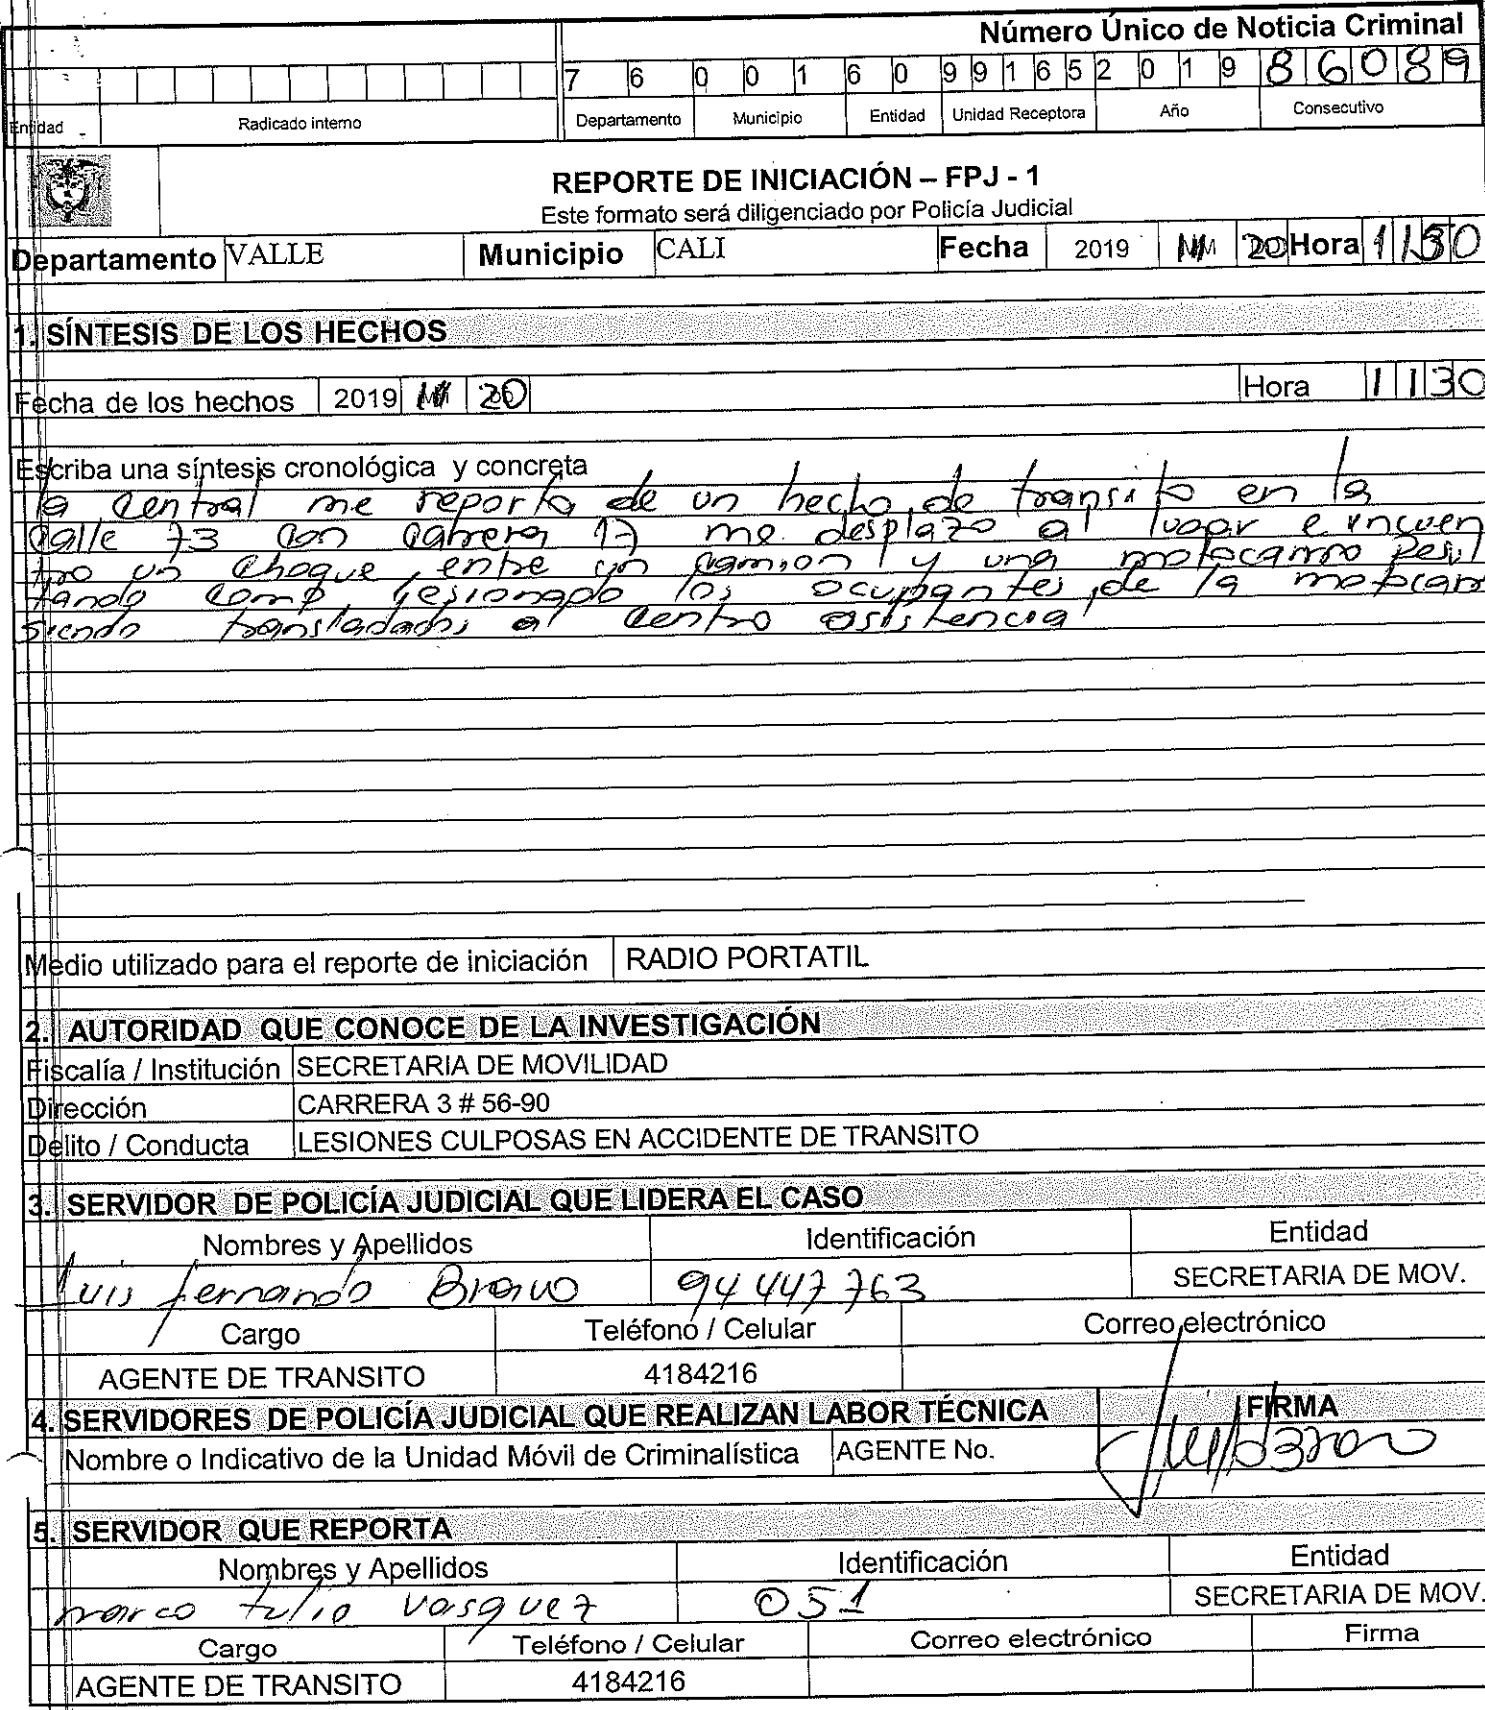 Número Único de Noticia Criminal
7 6 0 0 1 6 0 9 9 1 6 5 2 0 1 9 8 6 0 8 9
Entidad Radicado interno Departamento Municipio Entidad Unidad Receptora Año Consecutivo
REPORTE DE INICIACIÓN – FPJ - 1
Este formato será diligenciado por Policía Judicial
Departamento VALLE Municipio CALI Fecha 2019 20 Hora 1130
1. SÍNTESIS DE LOS HECHOS
Fecha de los hechos 2019 20 Hora 1130
Escriba una síntesis cronológica y concreta
la central me reporta de un hecho de transito en la
calle 73 con carrera 17 me desplazo al lugar e encuen
tro un choque entre un camion y una motocarro resul
tando como lesionado los ocupantes de la motocarr
siendo transladados al centro asistencia
Medio utilizado para el reporte de iniciación RADIO PORTATIL
2. AUTORIDAD QUE CONOCE DE LA INVESTIGACIÓN
Fiscalía / Institución SECRETARIA DE MOVILIDAD
Dirección CARRERA 3 # 56-90
Delito / Conducta LESIONES CULPOSAS EN ACCIDENTE DE TRANSITO
3. SERVIDOR DE POLICÍA JUDICIAL QUE LIDERA EL CASO
Nombres y Apellidos Identificación Entidad
Luis fernando Bravo 94 447 763 SECRETARIA DE MOV.
Cargo Teléfono / Celular Correo electrónico
AGENTE DE TRANSITO 4184216
4. SERVIDORES DE POLICÍA JUDICIAL QUE REALIZAN LABOR TÉCNICA FIRMA
Nombre o Indicativo de la Unidad Móvil de Criminalística AGENTE No.
5. SERVIDOR QUE REPORTA
Nombres y Apellidos Identificación Entidad
marco tulio vasquez 051 SECRETARIA DE MOV.
Cargo Teléfono / Celular Correo electrónico Firma
AGENTE DE TRANSITO 4184216